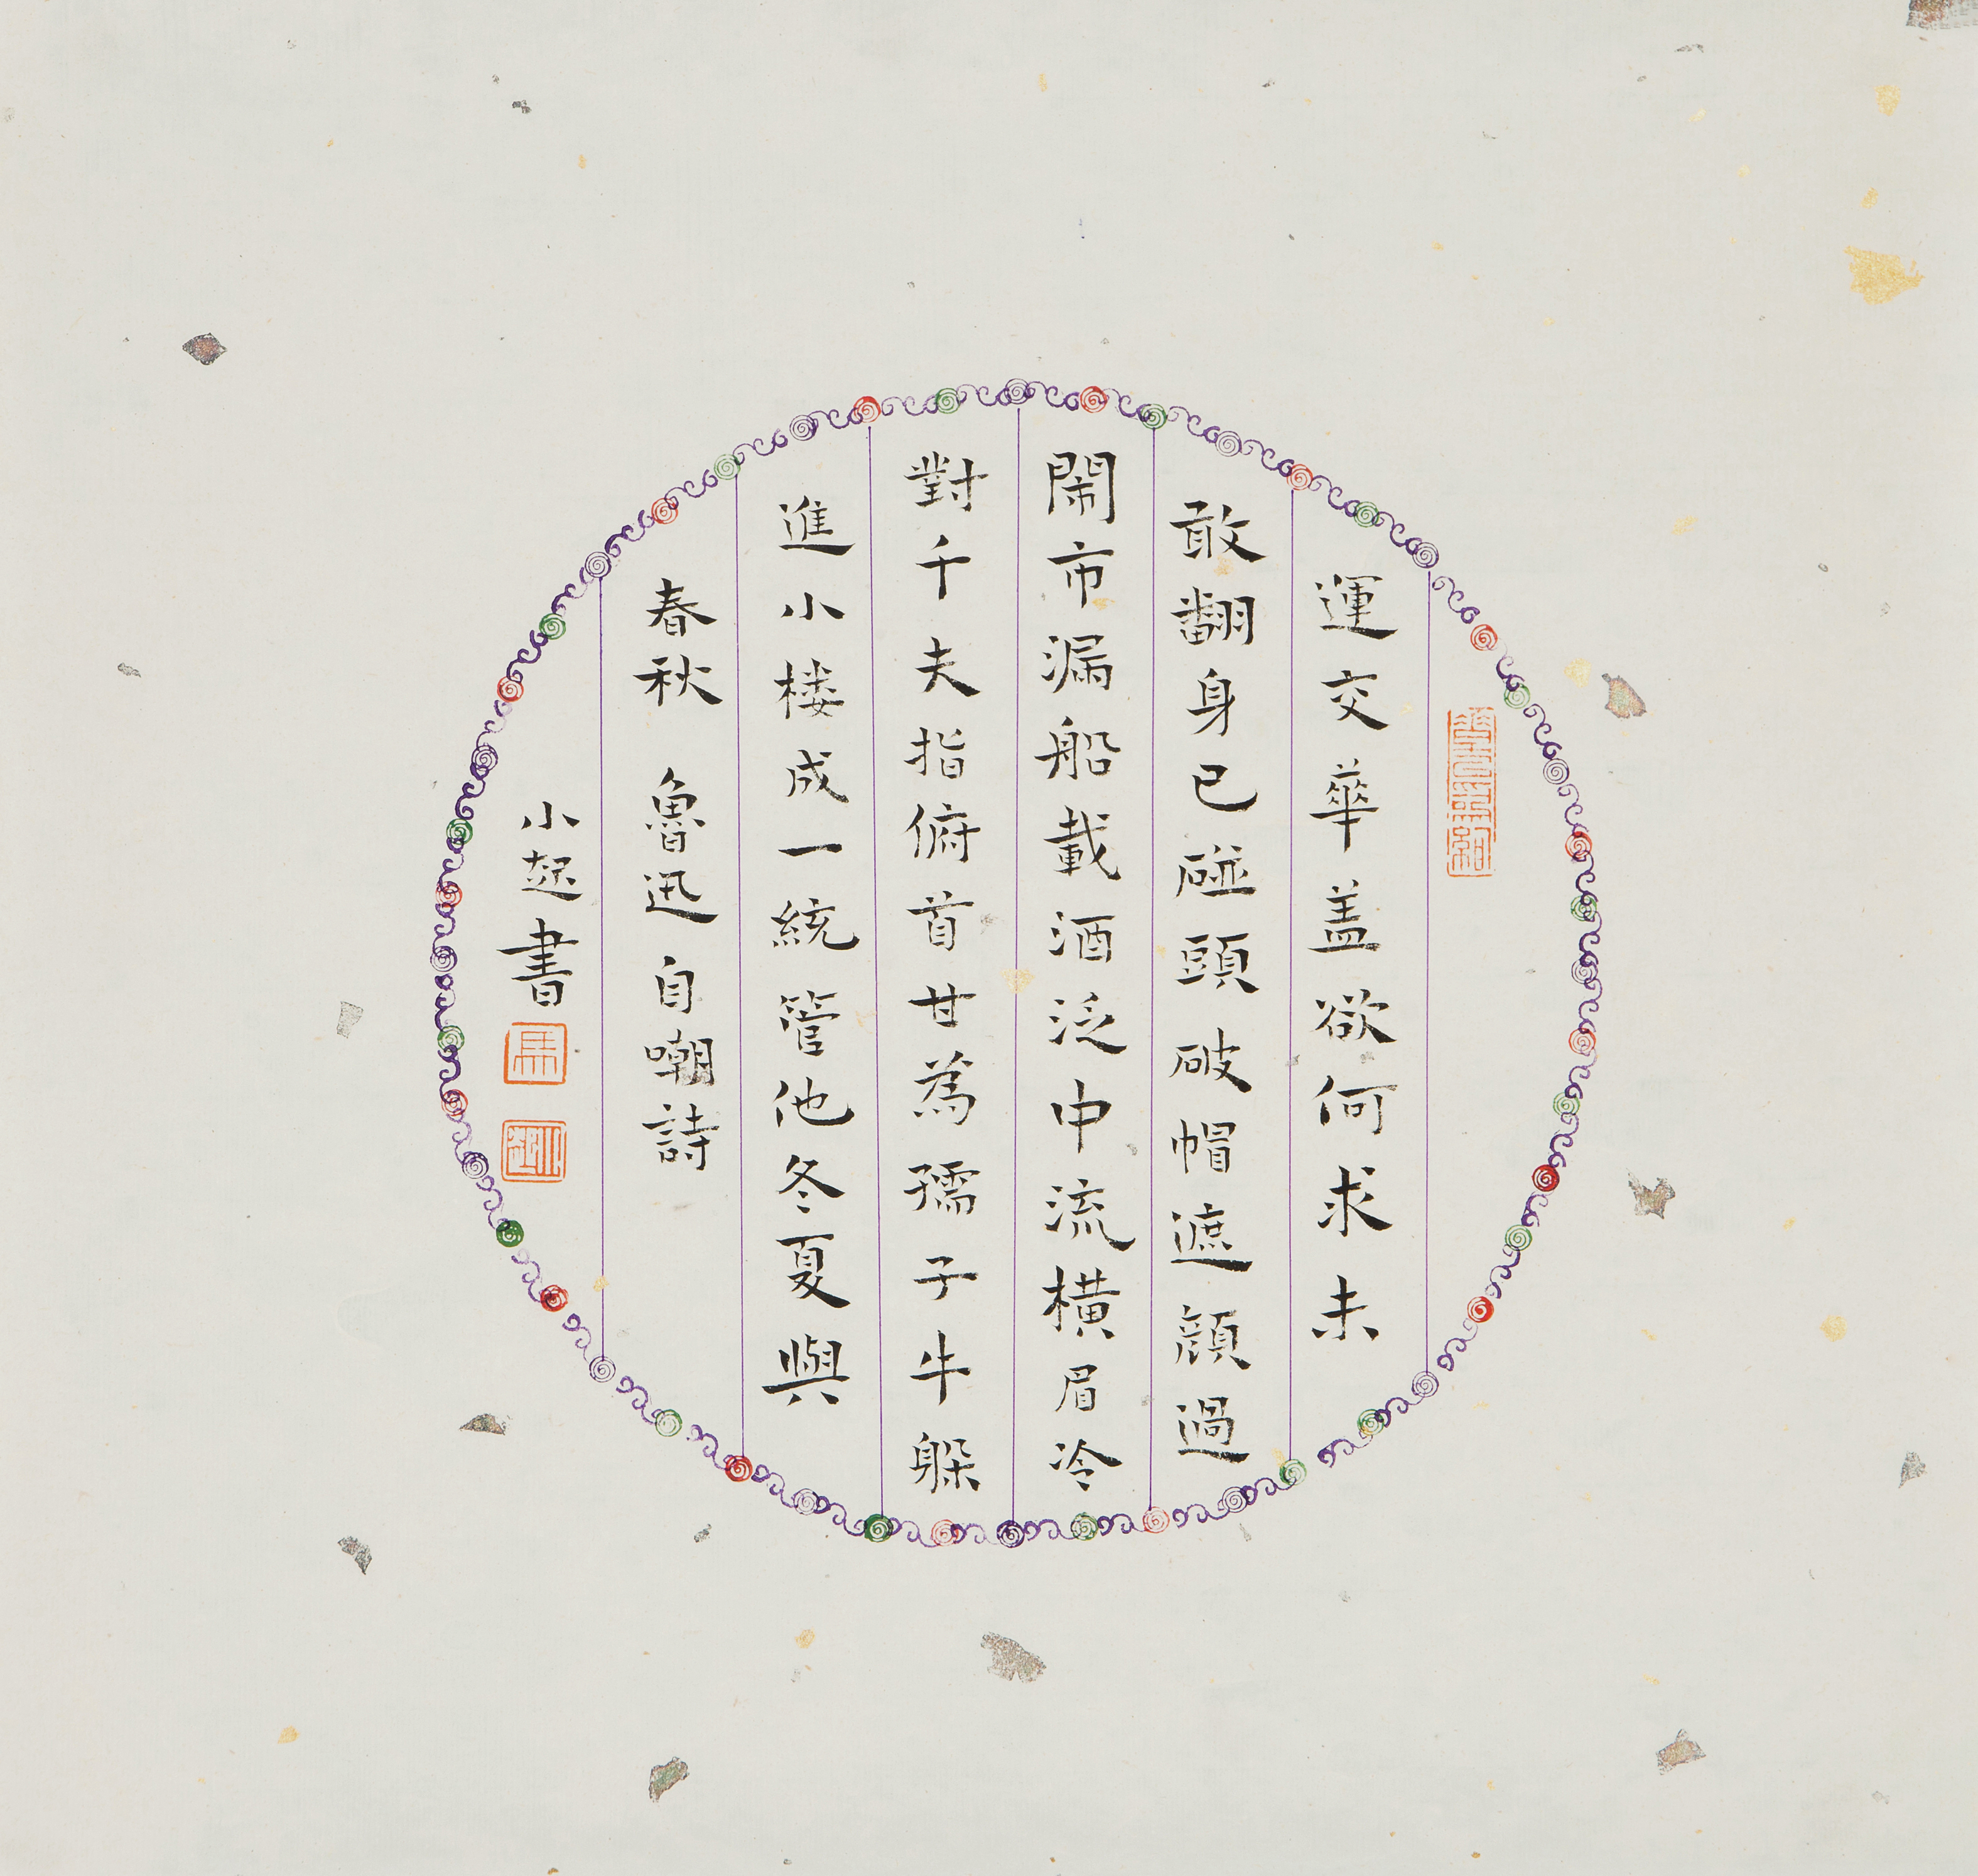 運交華盖欲何求未
敢翻身已碰頭破帽遮顔過
鬧市漏船載酒泛中流橫眉冷
對千夫指俯首甘為孺子牛躲
進小楼成一統管他冬夏與
春秋 魯迅自嘲詩
小起書